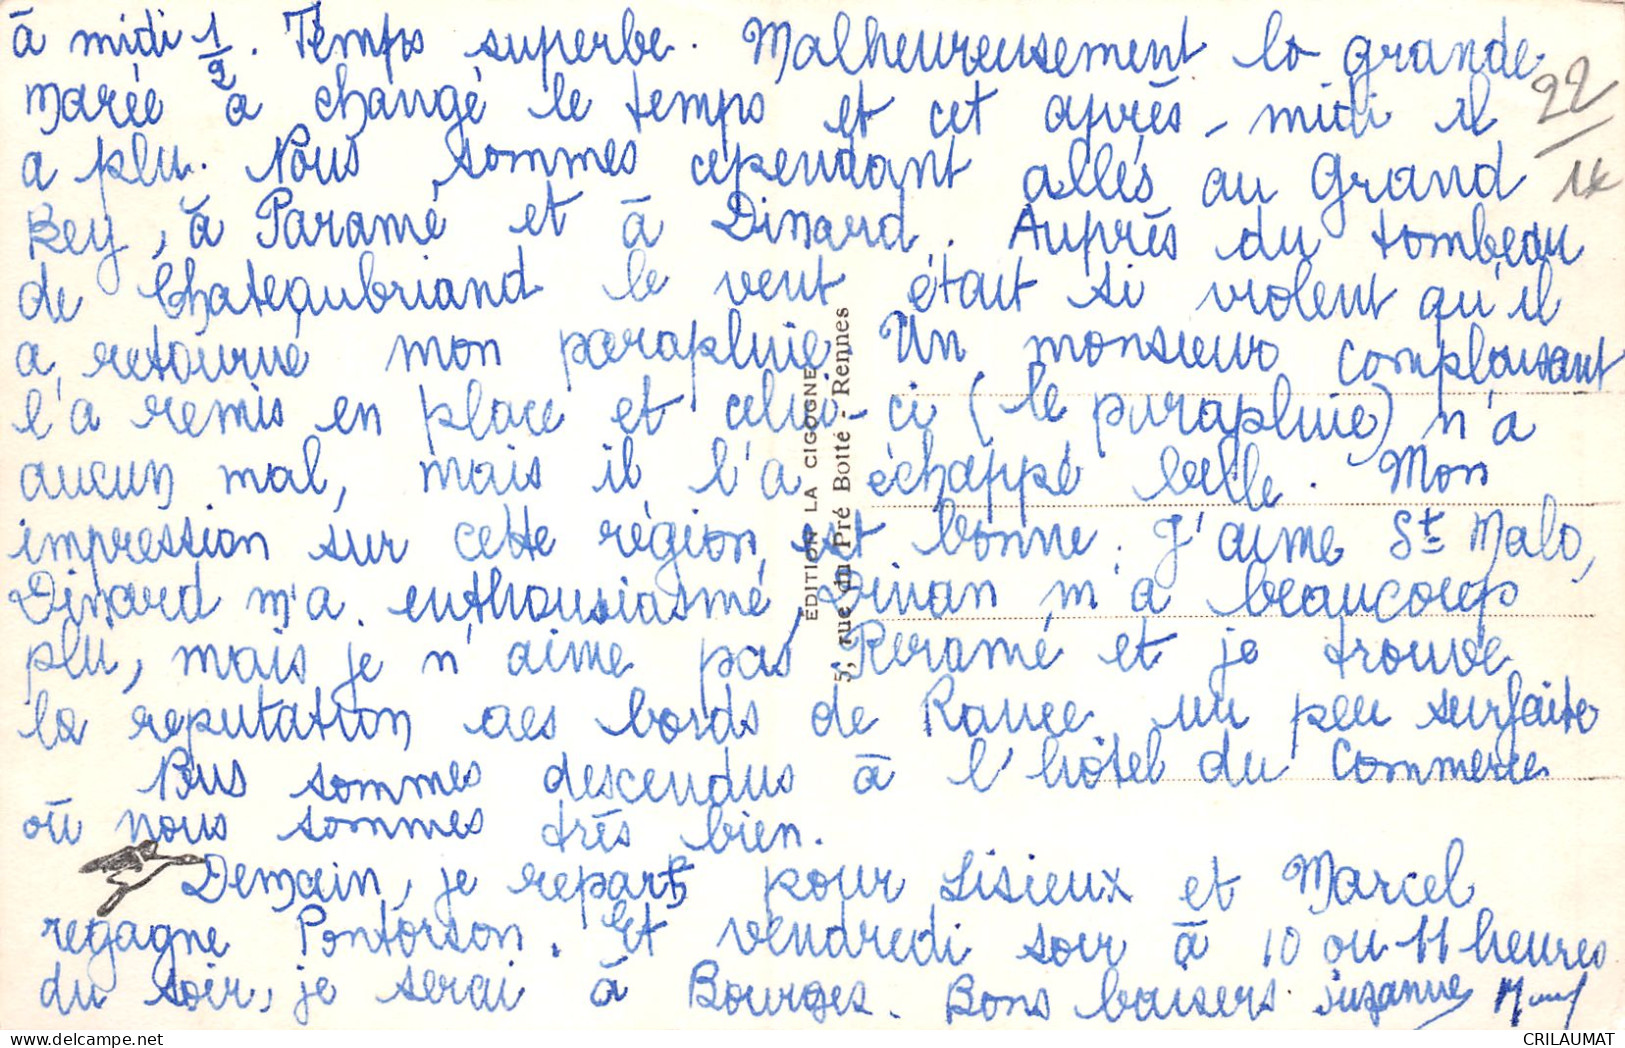 à midi 1/2. Temps superbe. Malheureusement la grande
marée a changé le temps et cet après-midi il
a plu. Nous sommes cependant allés au Grand
Bey, à Paramé et à Dinard. Auprès du tombeau
de Chateaubriand le vent était si violent qu'il
a retourné mon parapluie. Un monsieur complaisant
l'a remis en place et celui-ci (le parapluie) n'a
aucun mal, mais il l'a échappé belle. Mon
impression sur cette région est bonne. J'aime St Malo,
Dinard m'a enthousiasmé, Dinan m'a beaucoup
plu, mais je n'aime pas Paramé et je trouve
la reputation des bords de Rance un peu surfaite
Nous sommes descendus à l'hôtel du Commerce
où nous sommes très bien.
Demain, je repars pour Lisieux et Marcel
regagne Pontorson. Et vendredi soir à 10 ou 11 heures
du soir, je serai à Bourges. Bons baisers. Suzanne
22
14
EDITION LA CIGOGNE
5, rue du Pré Botté - Rennes
CRILAUMAT